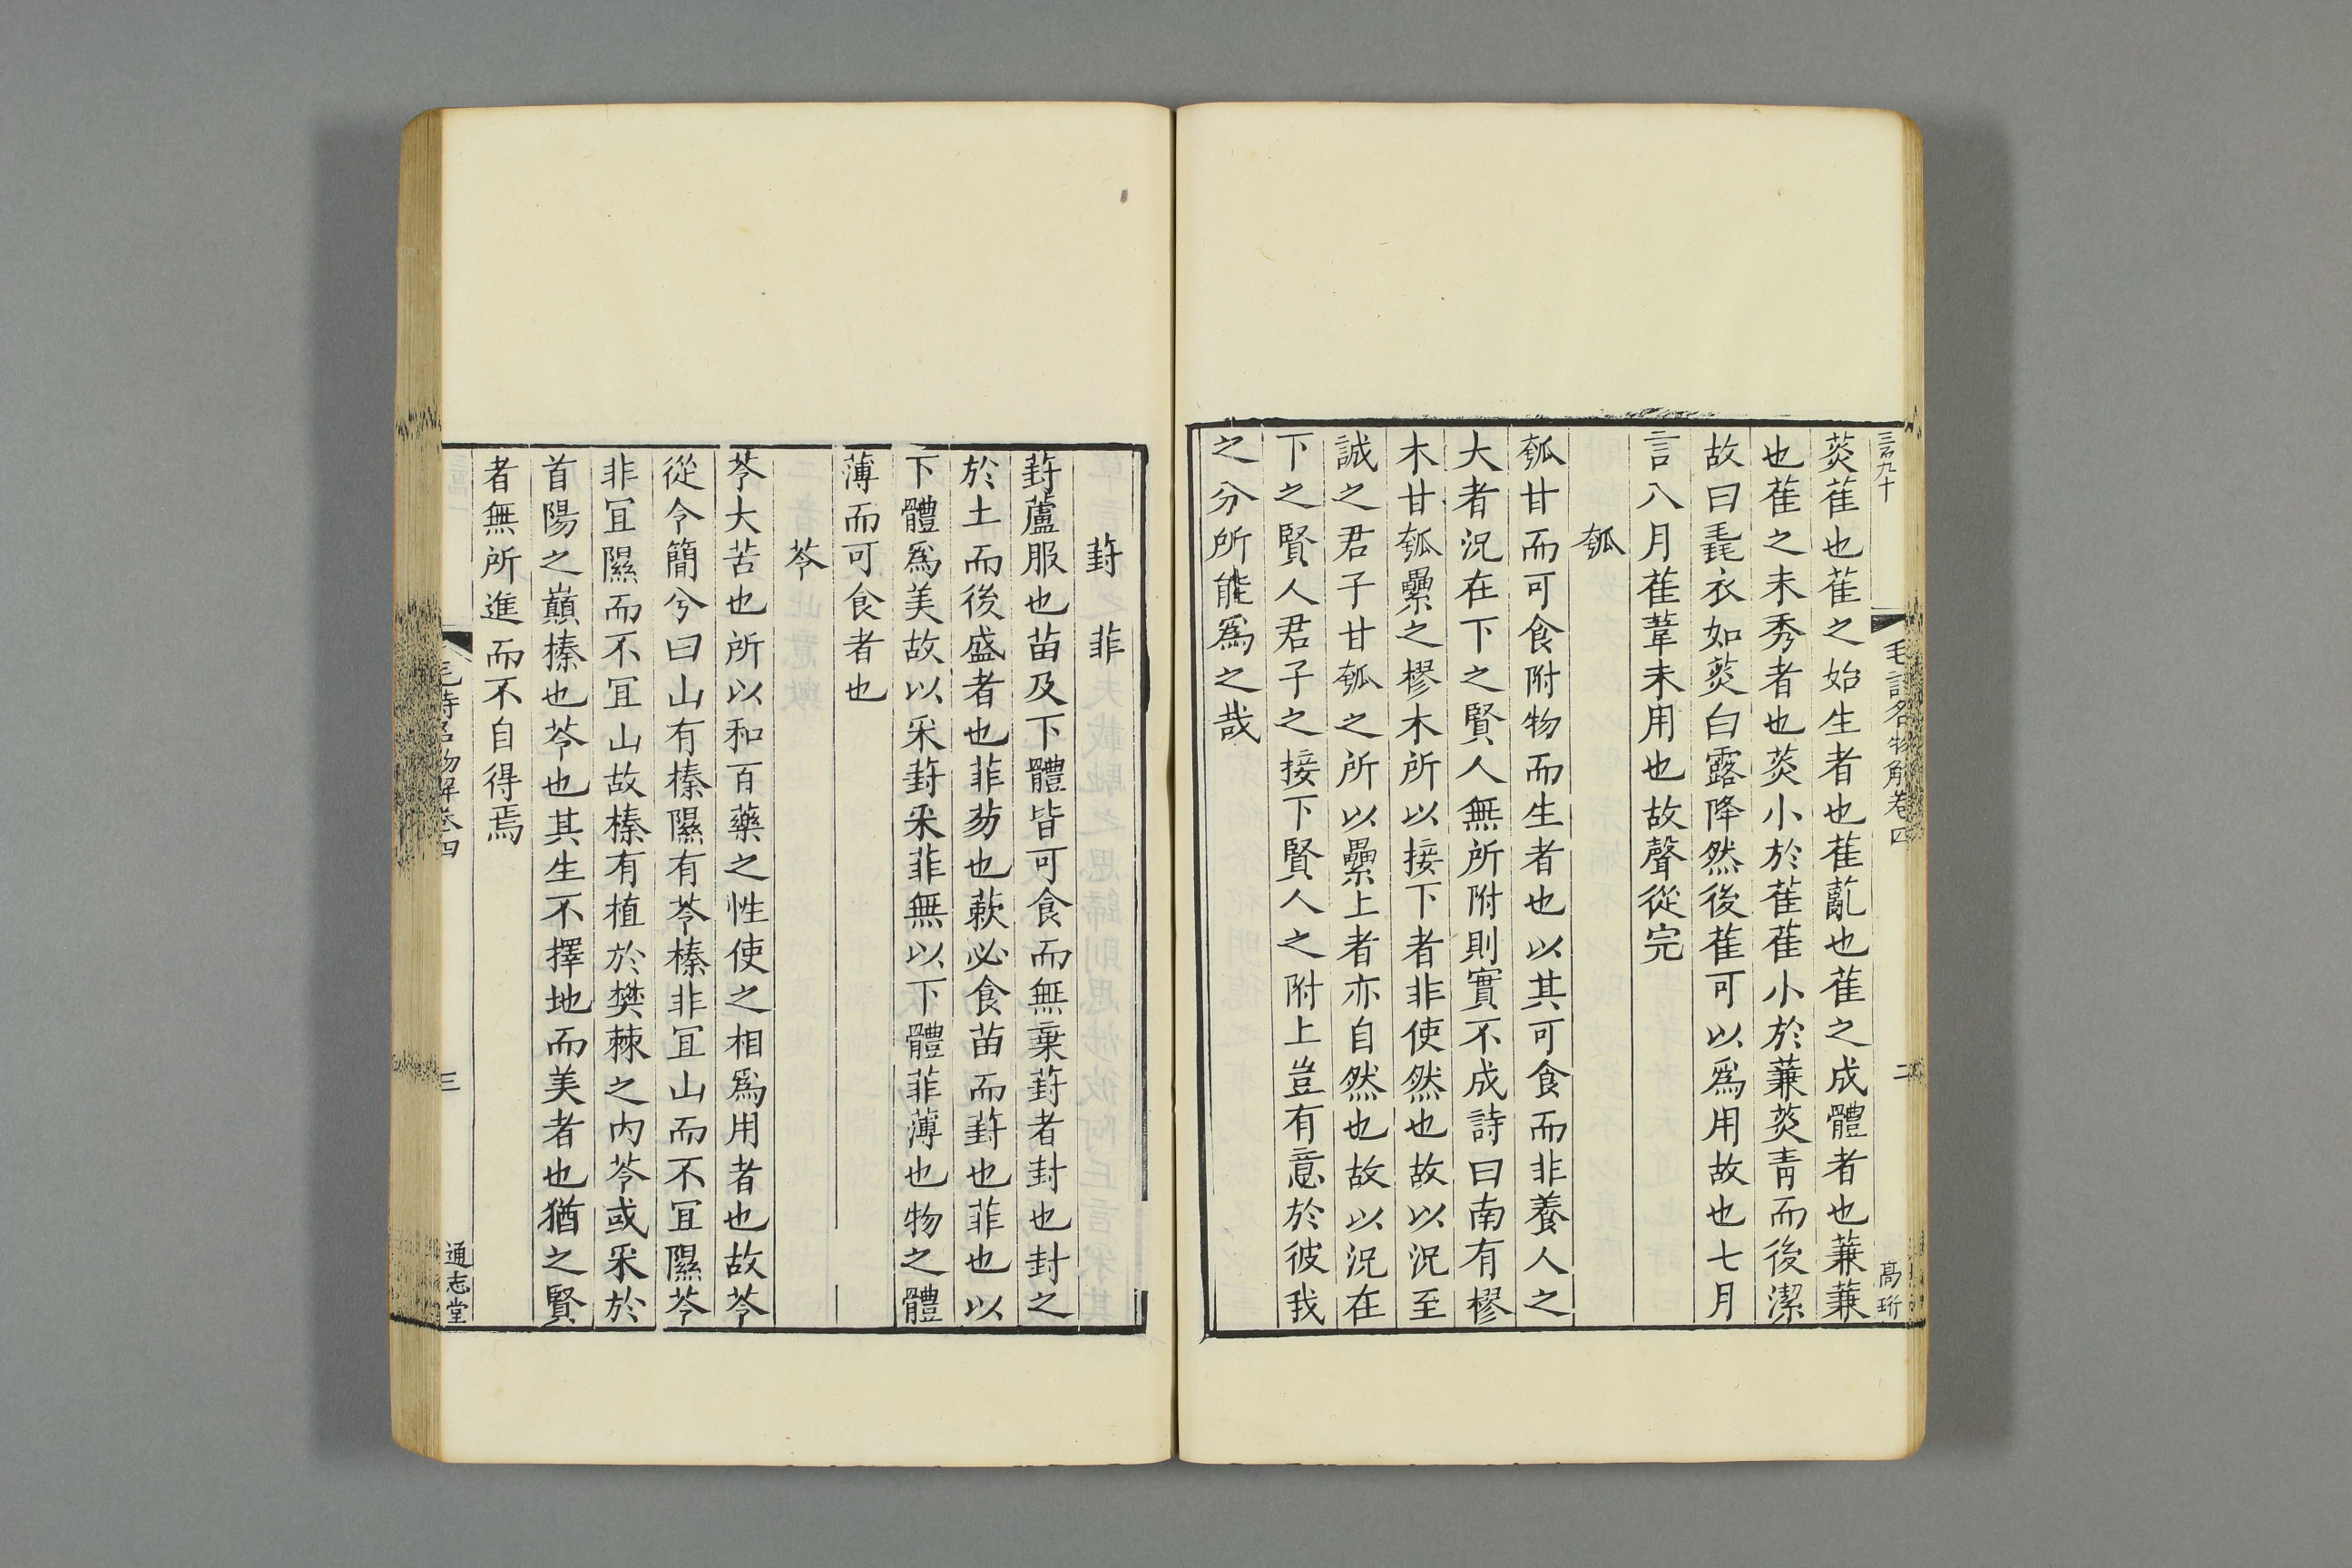 菼萑也萑之始生者也萑薍也萑之成體者也蒹蒹
也萑之未秀者也菼小於萑萑小於蒹菼青而後潔
故曰毳衣如菼白露降然後萑可以爲用故也七月
言八月萑葦未用也故聲從完
瓠
瓠甘而可食附物而生者也以其可食而非養人之
大者況在下之賢人無所附則實不成詩曰南有樛
木甘瓠纍之樛木所以接下者非使然也故以況至
誠之君子甘瓠之所以纍上者亦自然也故以況在
下之賢人君子之接下賢人之附上豈有意於彼我
之分所能爲之哉
毛詩名物解卷四
二
高珩
葑菲
葑蘆服也苗及下體皆可食而無棄葑者封也封之
於土而後盛者也菲芴也蔌必食苗而葑也菲也以
下體爲美故以采葑采菲無以下體菲薄也物之體
薄而可食者也
苓
苓大苦也所以和百藥之性使之相爲用者也故苓
從令簡兮曰山有榛隰有苓榛非宜山而不宜隰苓
非宜隰而不宜山故榛有植於樊棘之內苓或采於
首陽之巔榛也苓也其生不擇地而美者也猶之賢
者無所進而不自得焉
毛詩名物解卷四
三
通志堂